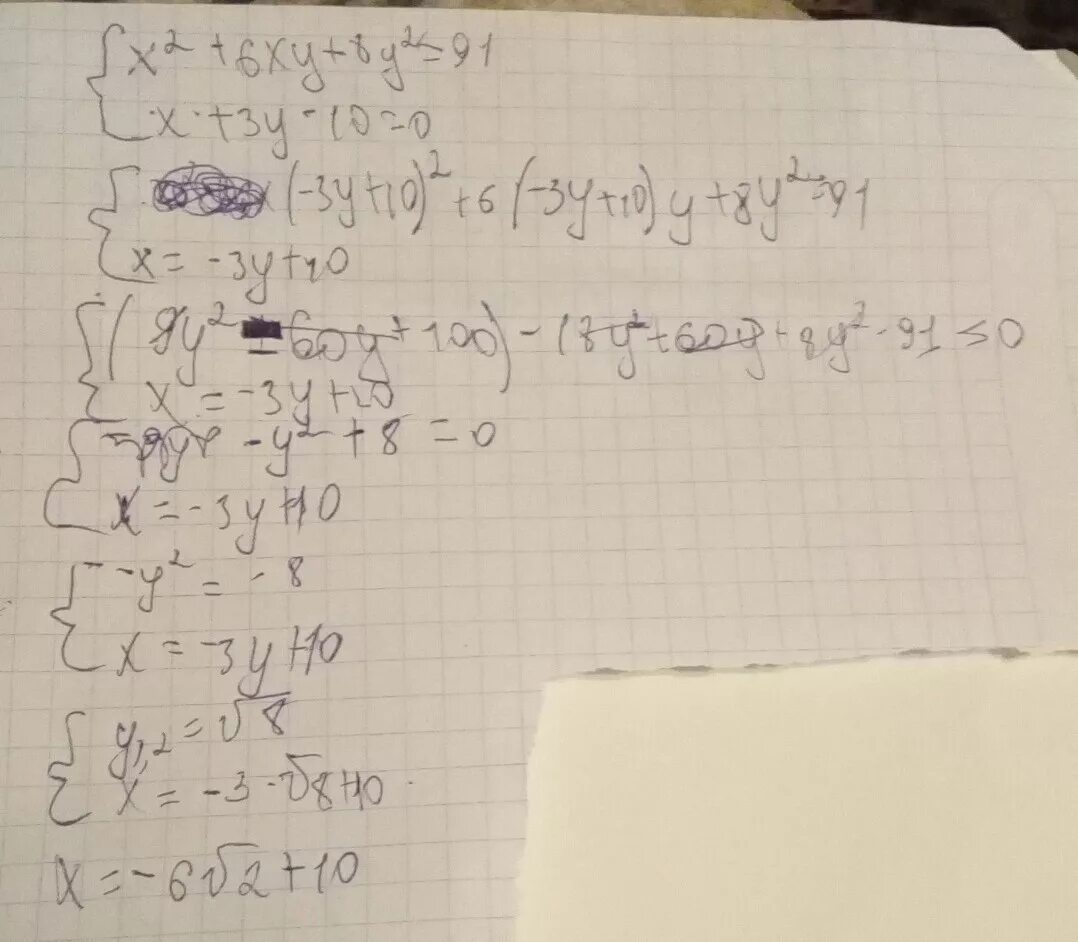 x² + 6xy + 8y² = 91
x + 3y - 10 = 0
(-3y + 10)² + 6(-3y + 10)y + 8y² = 91
x = -3y + 10
(9y² - 60y + 100) - 18y² + 60y + 8y² - 91 = 0
x = -3y + 10
-y² + 8 = 0
x = -3y + 10
-y² = -8
x = -3y + 10
y₁,₂ = √8
x = -3 · √8 + 10
x = -6√2 + 10